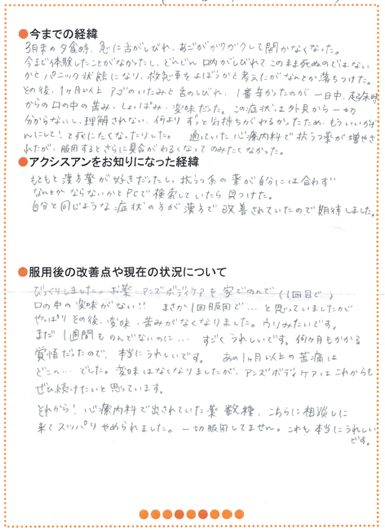 ●今までの経緯
3月末の夕食時、急に舌がしびれ、あごがガクガクして開かなくなった。
今まで体験したことがなかったし、どんどん口内がしびれてこのまま死ぬのではない
かとパニック状態になり、救急車をよぼうかと考えたがなんとか落ちつけた。
その後、1ヶ月以上アゴのいたみと舌のしびれ、1番辛かったのが一日中、起床時
からの口の中の苦み・しょっぱみ・変味だった。この症状は外見から一切
分からないし、理解されない、何よりずっと気持ちがわるかったため、もういいかげ
んにして!とすてたくなったりした。 通っていた心療内科で抗うつ薬が増やさ
れたが、服用するとさらに具合がわるくなってのみたくなかった。
●アクシスアンをお知りになった経緯
もともと漢方薬が好きだったし、抗うつ系の薬が自分には合わず
なんとかならないかとPCで検索していたら見つけた。
自分と同じような症状の方が漢方で改善されていたので期待しました。
●服用後の改善点や現在の状況について
びっくりしました。お薬、アンズボディケアを家でのんで(1回目で)
口の中の変味がない!! まさか1回服用で…と思っていましたが
やっぱりその後、変味、苦みがなくなりました。ウソみたいです。
まだ1週間ものんでないのに… すごくうれしいです。何ヶ月もかかる
覚悟だったので、本当にうれしいです。 あの1ヶ月以上の苦痛は
どこへ…でした。変味はなくなりましたが、アンズボディケアはこれからも
ぜひ続けたいと思っています。
それから!心療内科で出されていた薬 数種、こちらに相談しに
来てスッパリやめられました。一切服用してません。これも本当にうれしい
です。